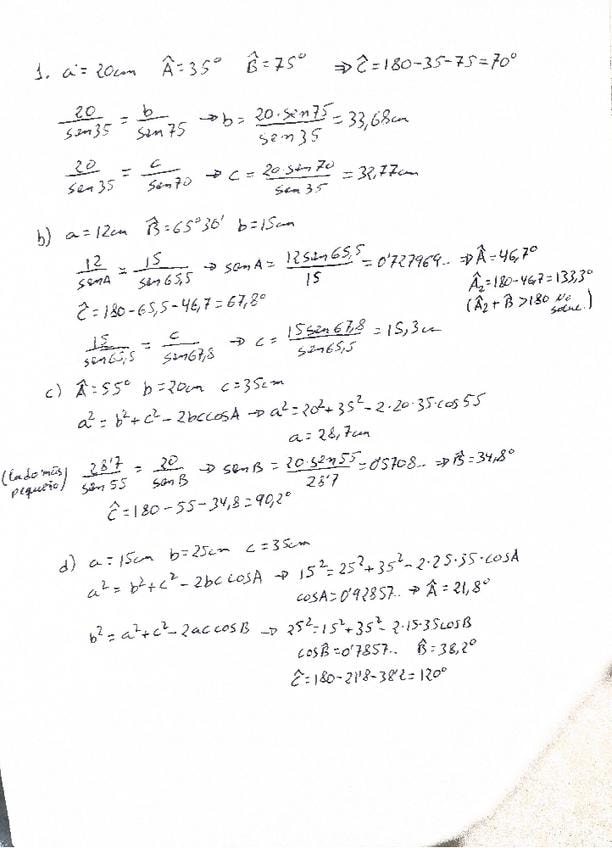 1. a = 20cm Â = 35° B̂ = 75° ⇒ Ĉ = 180 - 35 - 75 = 70°
20/sen35 = b/sen75 → b = 20·sen75/sen35 = 33,68cm
20/sen35 = c/sen70 → c = 20·sen70/sen35 = 32,77cm
b) a = 12cm B̂ = 65°30' b = 15cm
12/senA = 15/sen65,5 → senA = 12sen65,5/15 = 0'727969.. ⇒ Â = 46,7°
Â₂ = 180 - 46,7 = 133,3°
Ĉ = 180 - 65,5 - 46,7 = 67,8°
(Â₂ + B > 180 No soluc.)
15/sen65,5 = c/sen67,8 → c = 15sen67,8/sen65,5 = 15,3cm
c) Â = 55° b = 20cm c = 35cm
a² = b² + c² - 2bccosA → a² = 20² + 35² - 2·20·35·cos55
a = 28,7cm
(Lado más pequeño) 28'7/sen55 = 20/senB → senB = 20·sen55/28'7 = 0'5708.. ⇒ B̂ = 34,8°
Ĉ = 180 - 55 - 34,8 = 90,2°
d) a = 15cm b = 25cm c = 35cm
a² = b² + c² - 2bc cosA → 15² = 25² + 35² - 2·25·35·cosA
cosA = 0'92857.. → Â = 21,8°
b² = a² + c² - 2ac cosB → 25² = 15² + 35² - 2·15·35cosB
cosB̂ = 0'7857.. B̂ = 38,2°
Ĉ = 180 - 21'8 - 38'2 = 120°